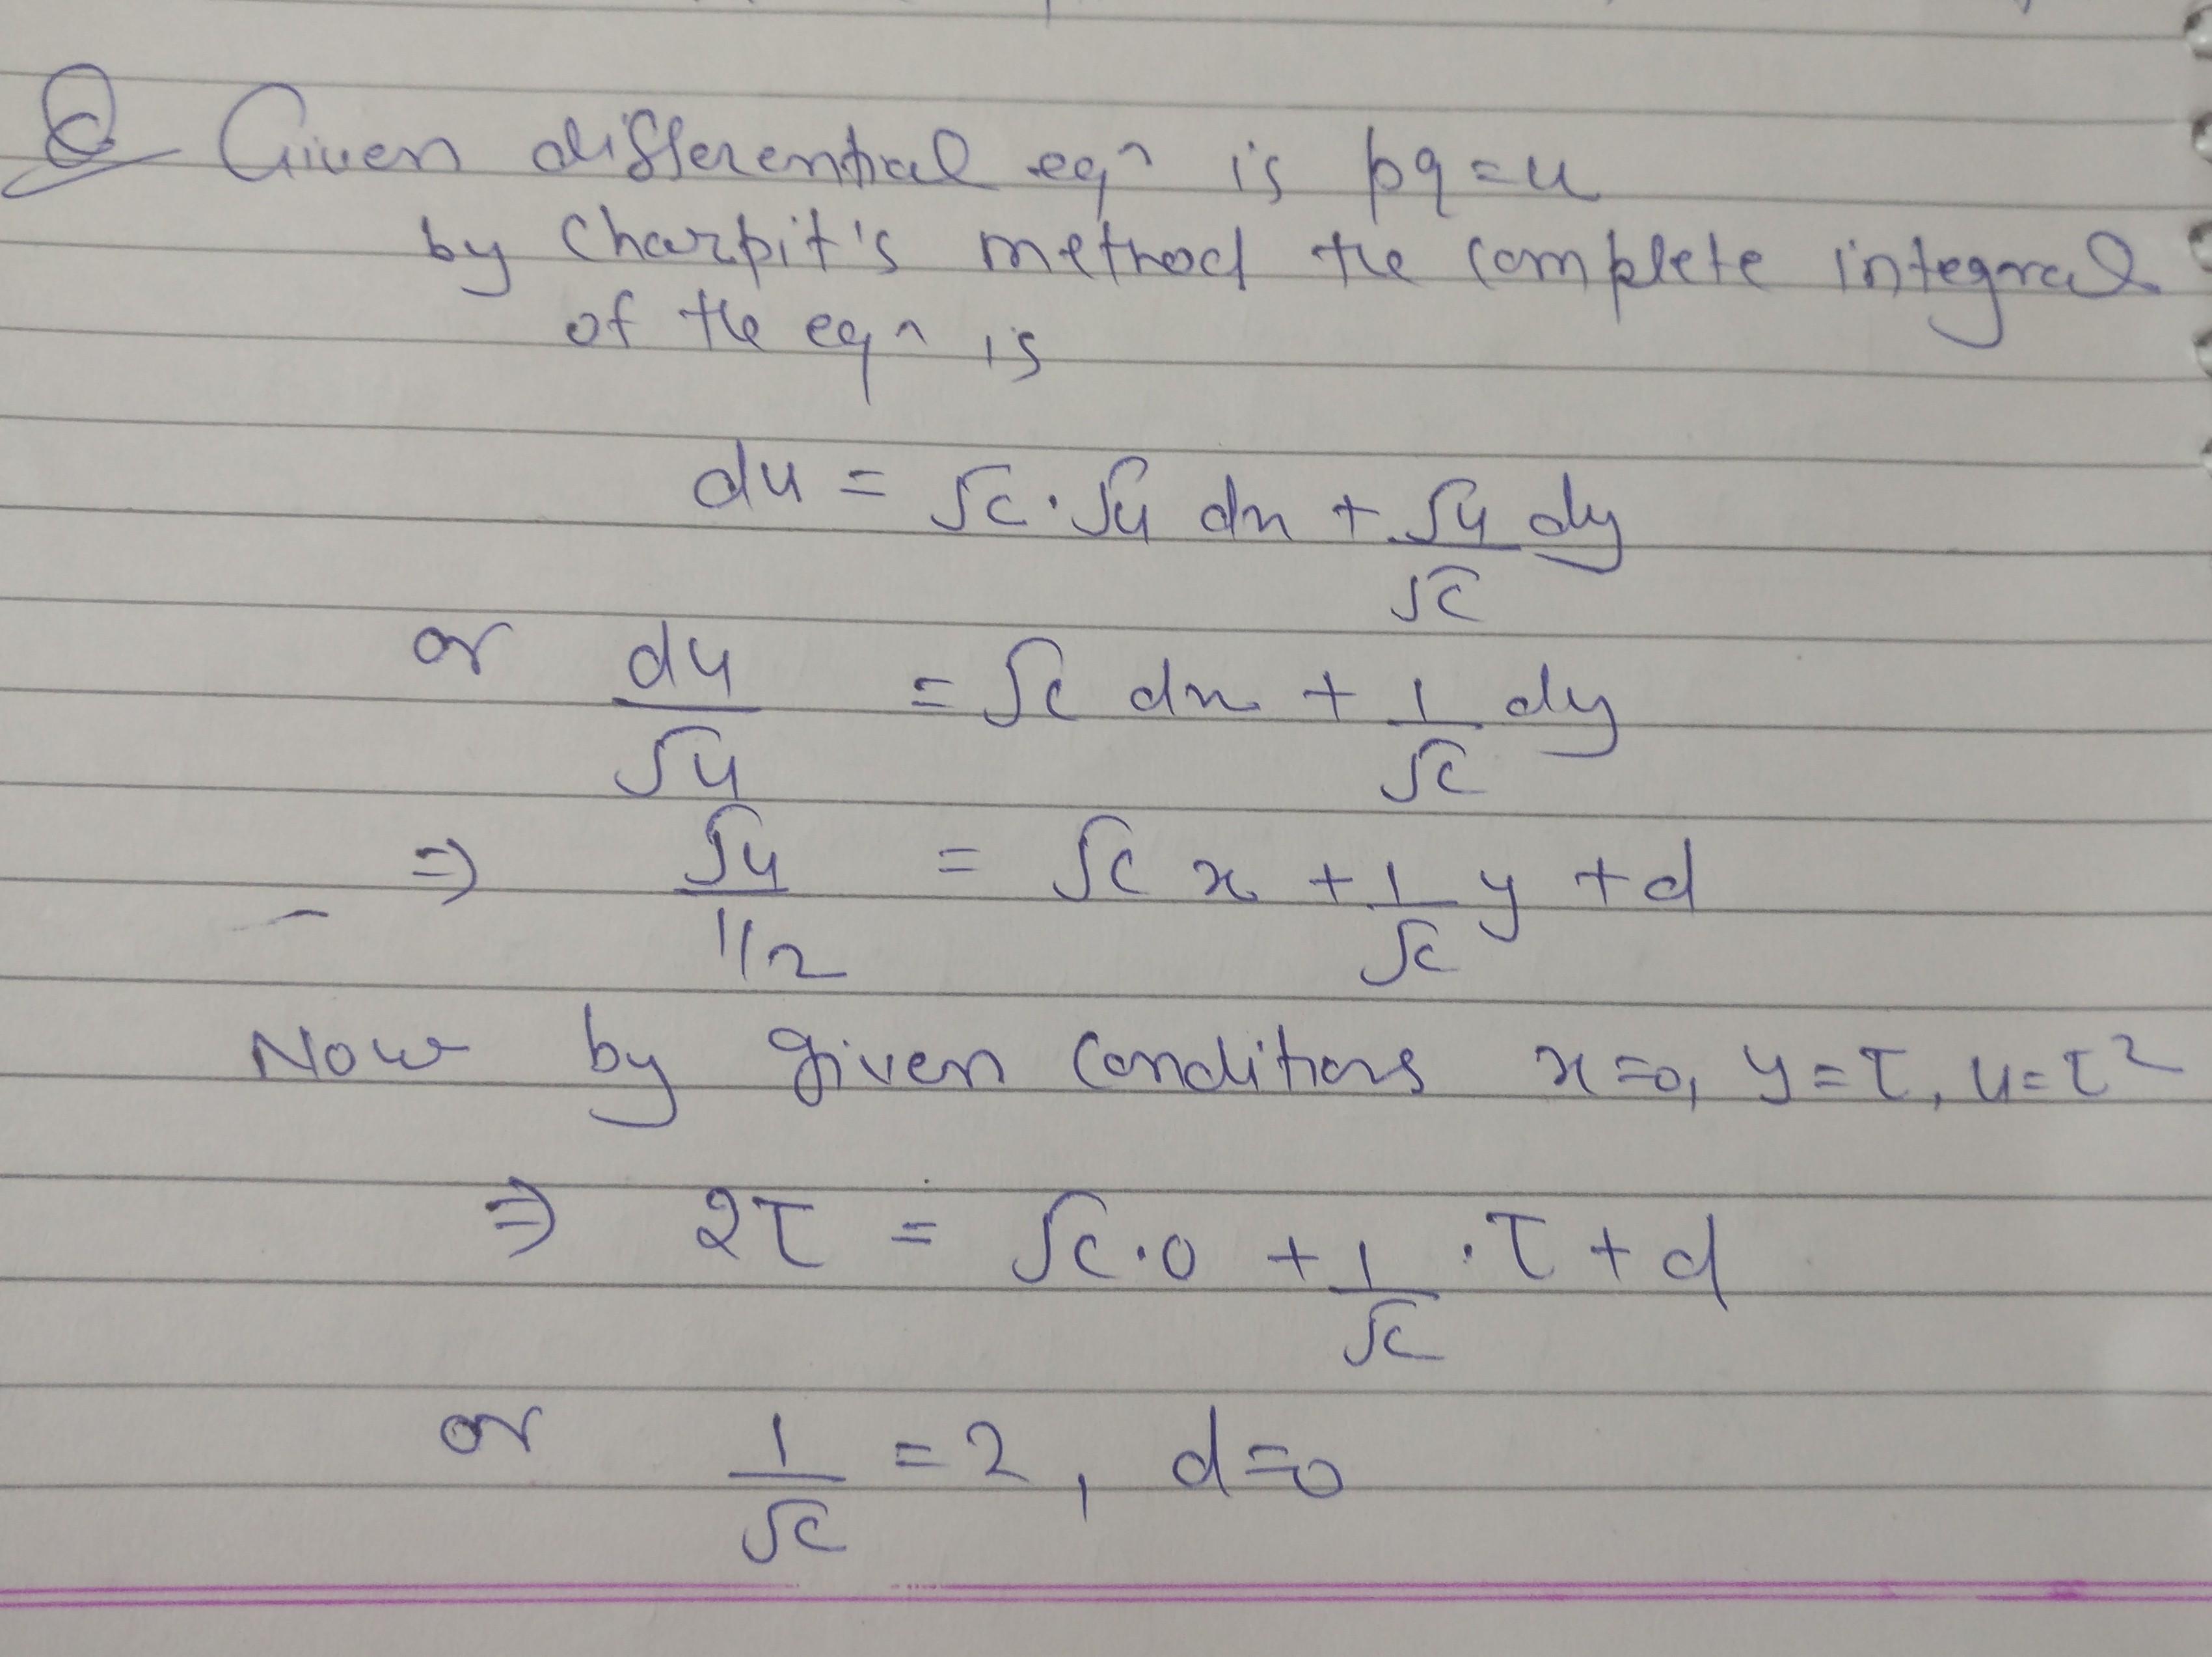 Q Given differential eqn is pq = u
by Charpit's method the complete integral
of the eqn is
du = √c · √u dx + √u/√c dy
or du/√u = √c dx + 1/√c dy
⇒ √u/(1/2) = √c x + 1/√c y + d
Now by given conditions x=0, y=τ, u=τ²
⇒ 2τ = √c · 0 + 1/√c · τ + d
or 1/√c = 2, d=0